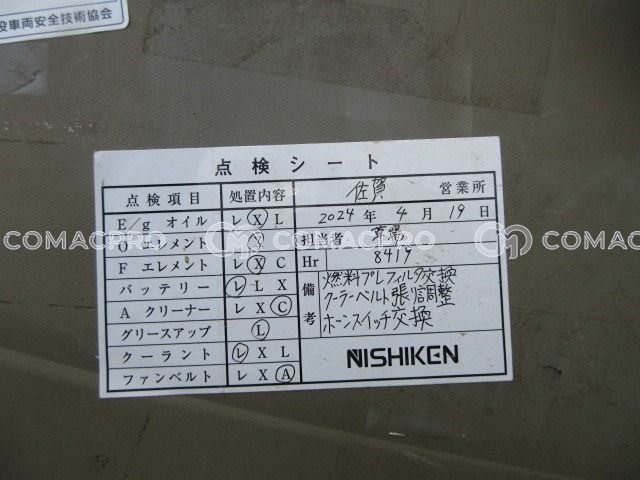 設車両安全技術協会
点検シート
点検項目 処置内容 佐賀 営業所
E/g オイル レ X L 2024 年 4 月 19 日
O エレメント X 担当者
F エレメント レ X C Hr 8419
バッテリー レ L X 備考 燃料プレフィルタ交換
A クリーナー レ X C クーラーベルト張り調整
グリースアップ L ホーンスイッチ交換
クーラント レ X L NISHIKEN
ファンベルト レ X A
COMACPRO COMACPRO COMACPRO COMACPRO